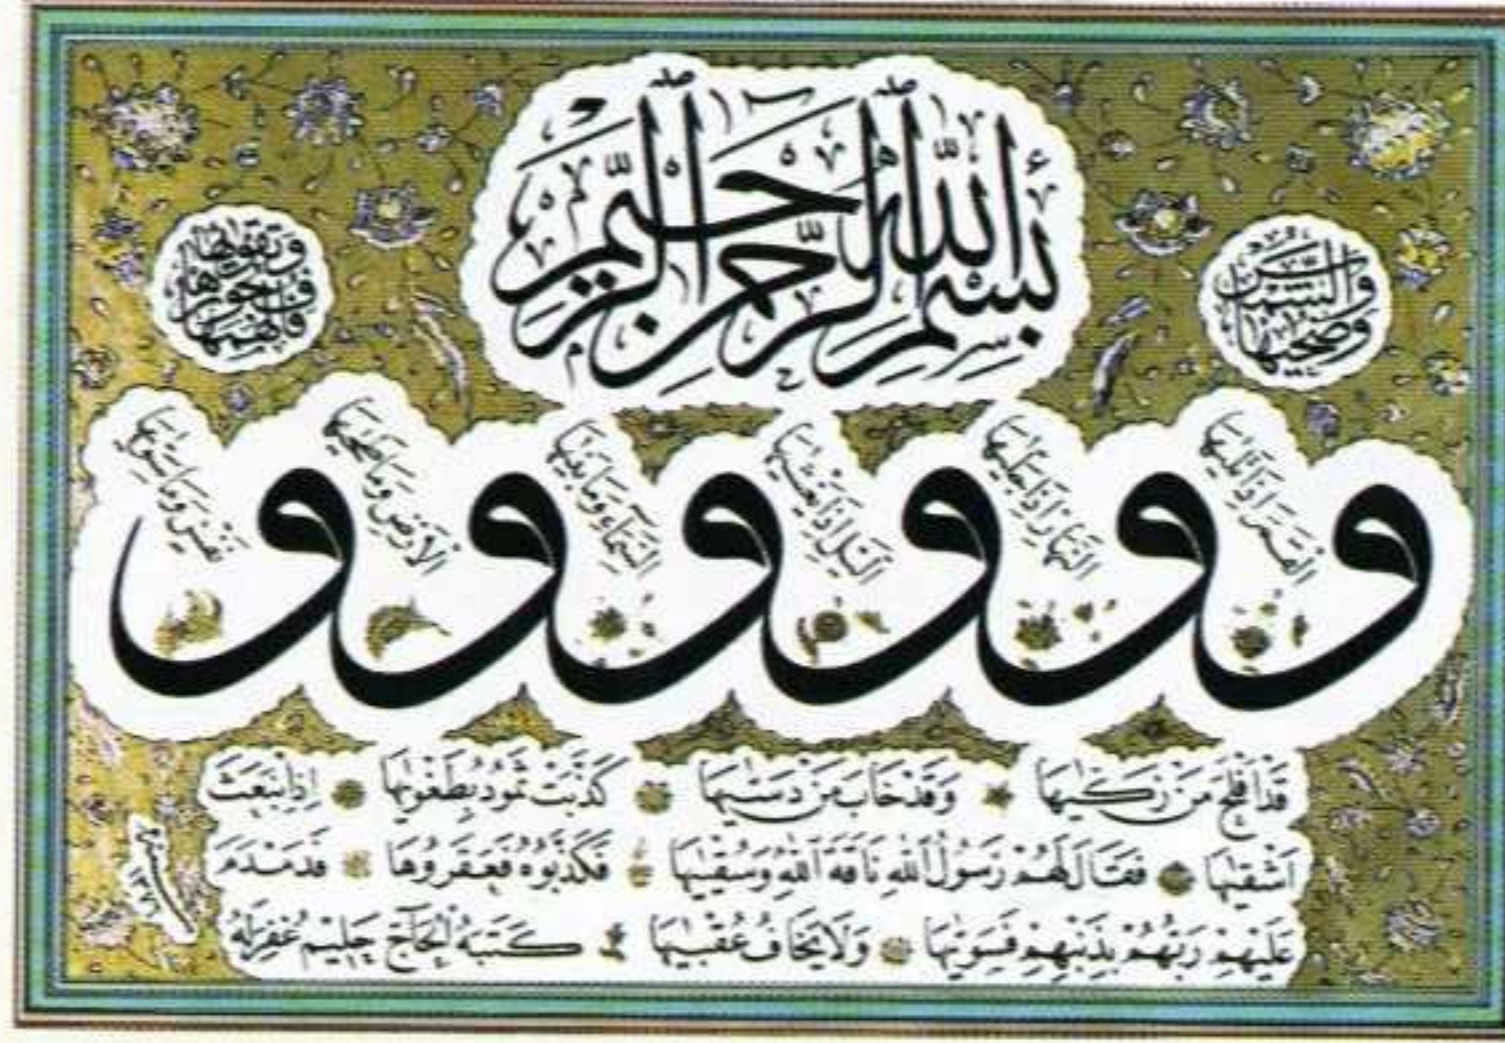 بسم الله الرحمن الرحيم
والشمس وضحيها
و القمر اذا تليها
و النهار اذا جليها
و الليل اذا يغشيها
و السماء وما بنيها
و الارض وما طحيها
و نفس وما سويها
فالهمها فجورها وتقويها
قد افلح من زكيها وقد خاب من دسيها كذبت ثمود بطغويها اذ انبعث
اشقيها فقال لهم رسول الله ناقة الله وسقيها فكذبوه فعقروها فدمدم
عليهم ربهم بذنبهم فسويها ولا يخاف عقبيها كتبه الحاج حليم غفر له